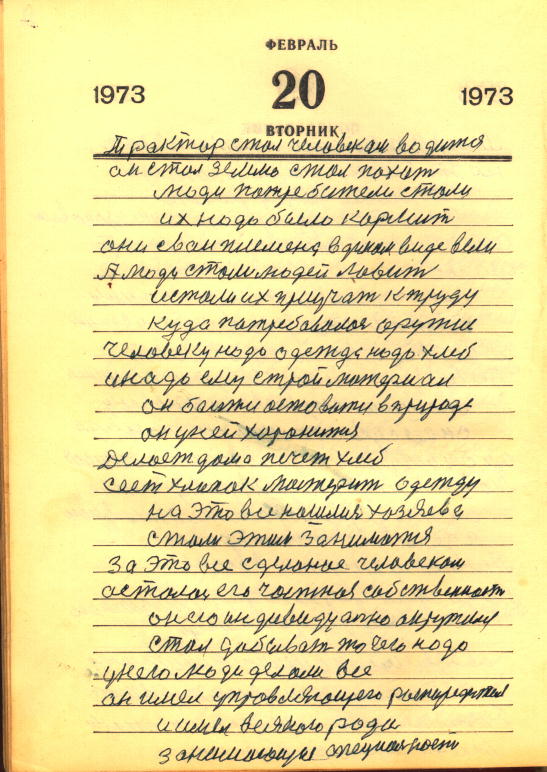 ФЕВРАЛЬ
1973 20 1973
ВТОРНИК
Трактор стал человекам водится
он стал землю стал похат
люди потребители стали
их надо было кормит
они сван племена в диком виде вели
А люди стали людей ловит
и стали их приучат к труду
куда потребовался оружие
человеку надо одежда надо хлеб
и надо ему строй материал
он болжи оставати в природе
он у ней хоронится
делает дома печет хлеб
сеет хлопок мастерит одежду
на это все нашлися хозяева
стали этим заниматся
За это все сделаное человеком
осталос его частная собственность
он его индивидуално окружил
стал добыват то чего надо
у него люди делали все
он имел управляющего распредител
и имел всякого рода
занимающие специалности